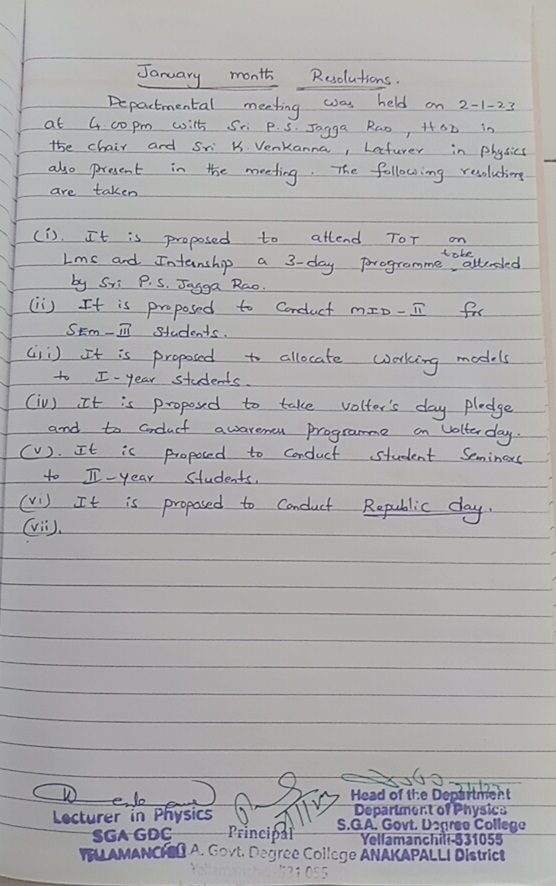 January month Resolutions.
Departmental meeting was held on 2-1-23
at 4.00pm with Sri P.S. Jagga Rao, HOD in
the chair and Sri K. Venkanna, Lecturer in physics
also present in the meeting. The following resolutions
are taken
(i). It is proposed to attend TOT on
Lmc and Internship a 3-day programme to be attended
by Sri P.S. Jagga Rao.
(ii) It is proposed to conduct MID-II for
SEM-III students.
(iii) It is proposed to allocate working models
to I-year students.
(iv) It is proposed to take volter's day pledge
and to conduct awareness programme on Volter day.
(v). It is proposed to conduct student seminars
to II-year students.
(vi) It is proposed to conduct Republic day.
(vii).
Lecturer in Physics
SGA GDC
YELLAMANCHILI
Principal
A. Govt. Degree College
Yellamanchili 531 055
Head of the Department
Department of Physics
S.G.A. Govt. Degree College
Yellamanchili-531055
ANAKAPALLI District